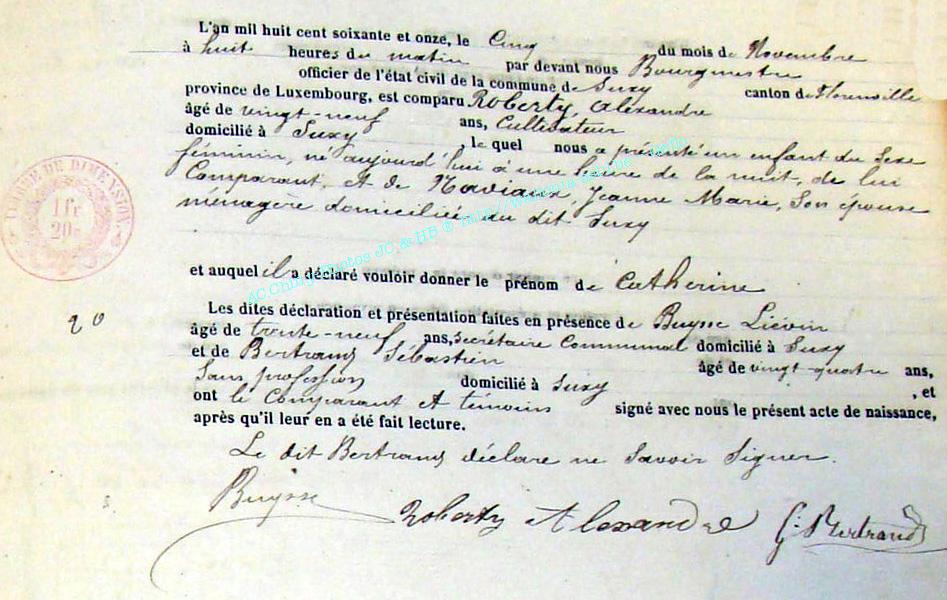 L'an mil huit cent soixante et onze, le Cinq du mois de Novembre
à huit heures du matin par devant nous Bourgmestre
officier de l'état civil de la commune de Suxy canton de Florenville
province de Luxembourg, est comparu Roberty, Alexandre
âgé de vingt-neuf ans, Cultivateur
domicilié à Suxy, le quel nous a présenté un enfant du Sexe
féminin, né aujourd'hui à une heure de la nuit, de lui
Comparant, et de Naviaux, Jeanne Marie, Son épouse
ménagère domiciliée au dit Suxy
1 fr
20c
et auquel il a déclaré vouloir donner le prénom de Catherine
Les dites déclaration et présentation faites en présence de Buysse Liévin
20
âgé de trente-neuf ans, Secrétaire Communal domicilié à Suxy
et de Bertrand Sébastien âgé de vingt-quatre ans,
Sans profession domicilié à Suxy, et
ont le Comparant et témoins signé avec nous le présent acte de naissance,
après qu'il leur en a été fait lecture.
Le dit Bertrand déclare ne Savoir Signer.
Buysse Roberty Alexandre Bertrand